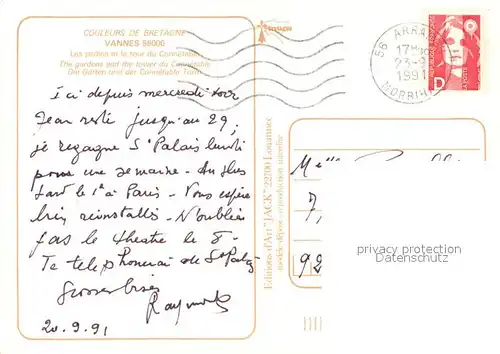 COULEURS DE BRETAGNE
VANNES 56000
Les jardins et la tour du Connétable
The gardens and the tower of Connétable
Die Gärten und der Connétable Turm
Bretagne
Ici depuis mercredi soir
Jean resté jusqu'au 29,
je regagne St Palais lundi
pour une semaine - Au plus
tard le 1er à Paris - Vous espère
bien réinstallés - N'oubliez
pas le théatre le 8 -
Te telephonerai de St Palais
Grosses bises
20.9.91
Editions d'Art "JACK" 22700 Louannec
modèle déposé - reproduction interdite
56 ARRA
17H
23-9
1991
MORBIH
D
Melle
7,
92
privacy protection
Datenschutz